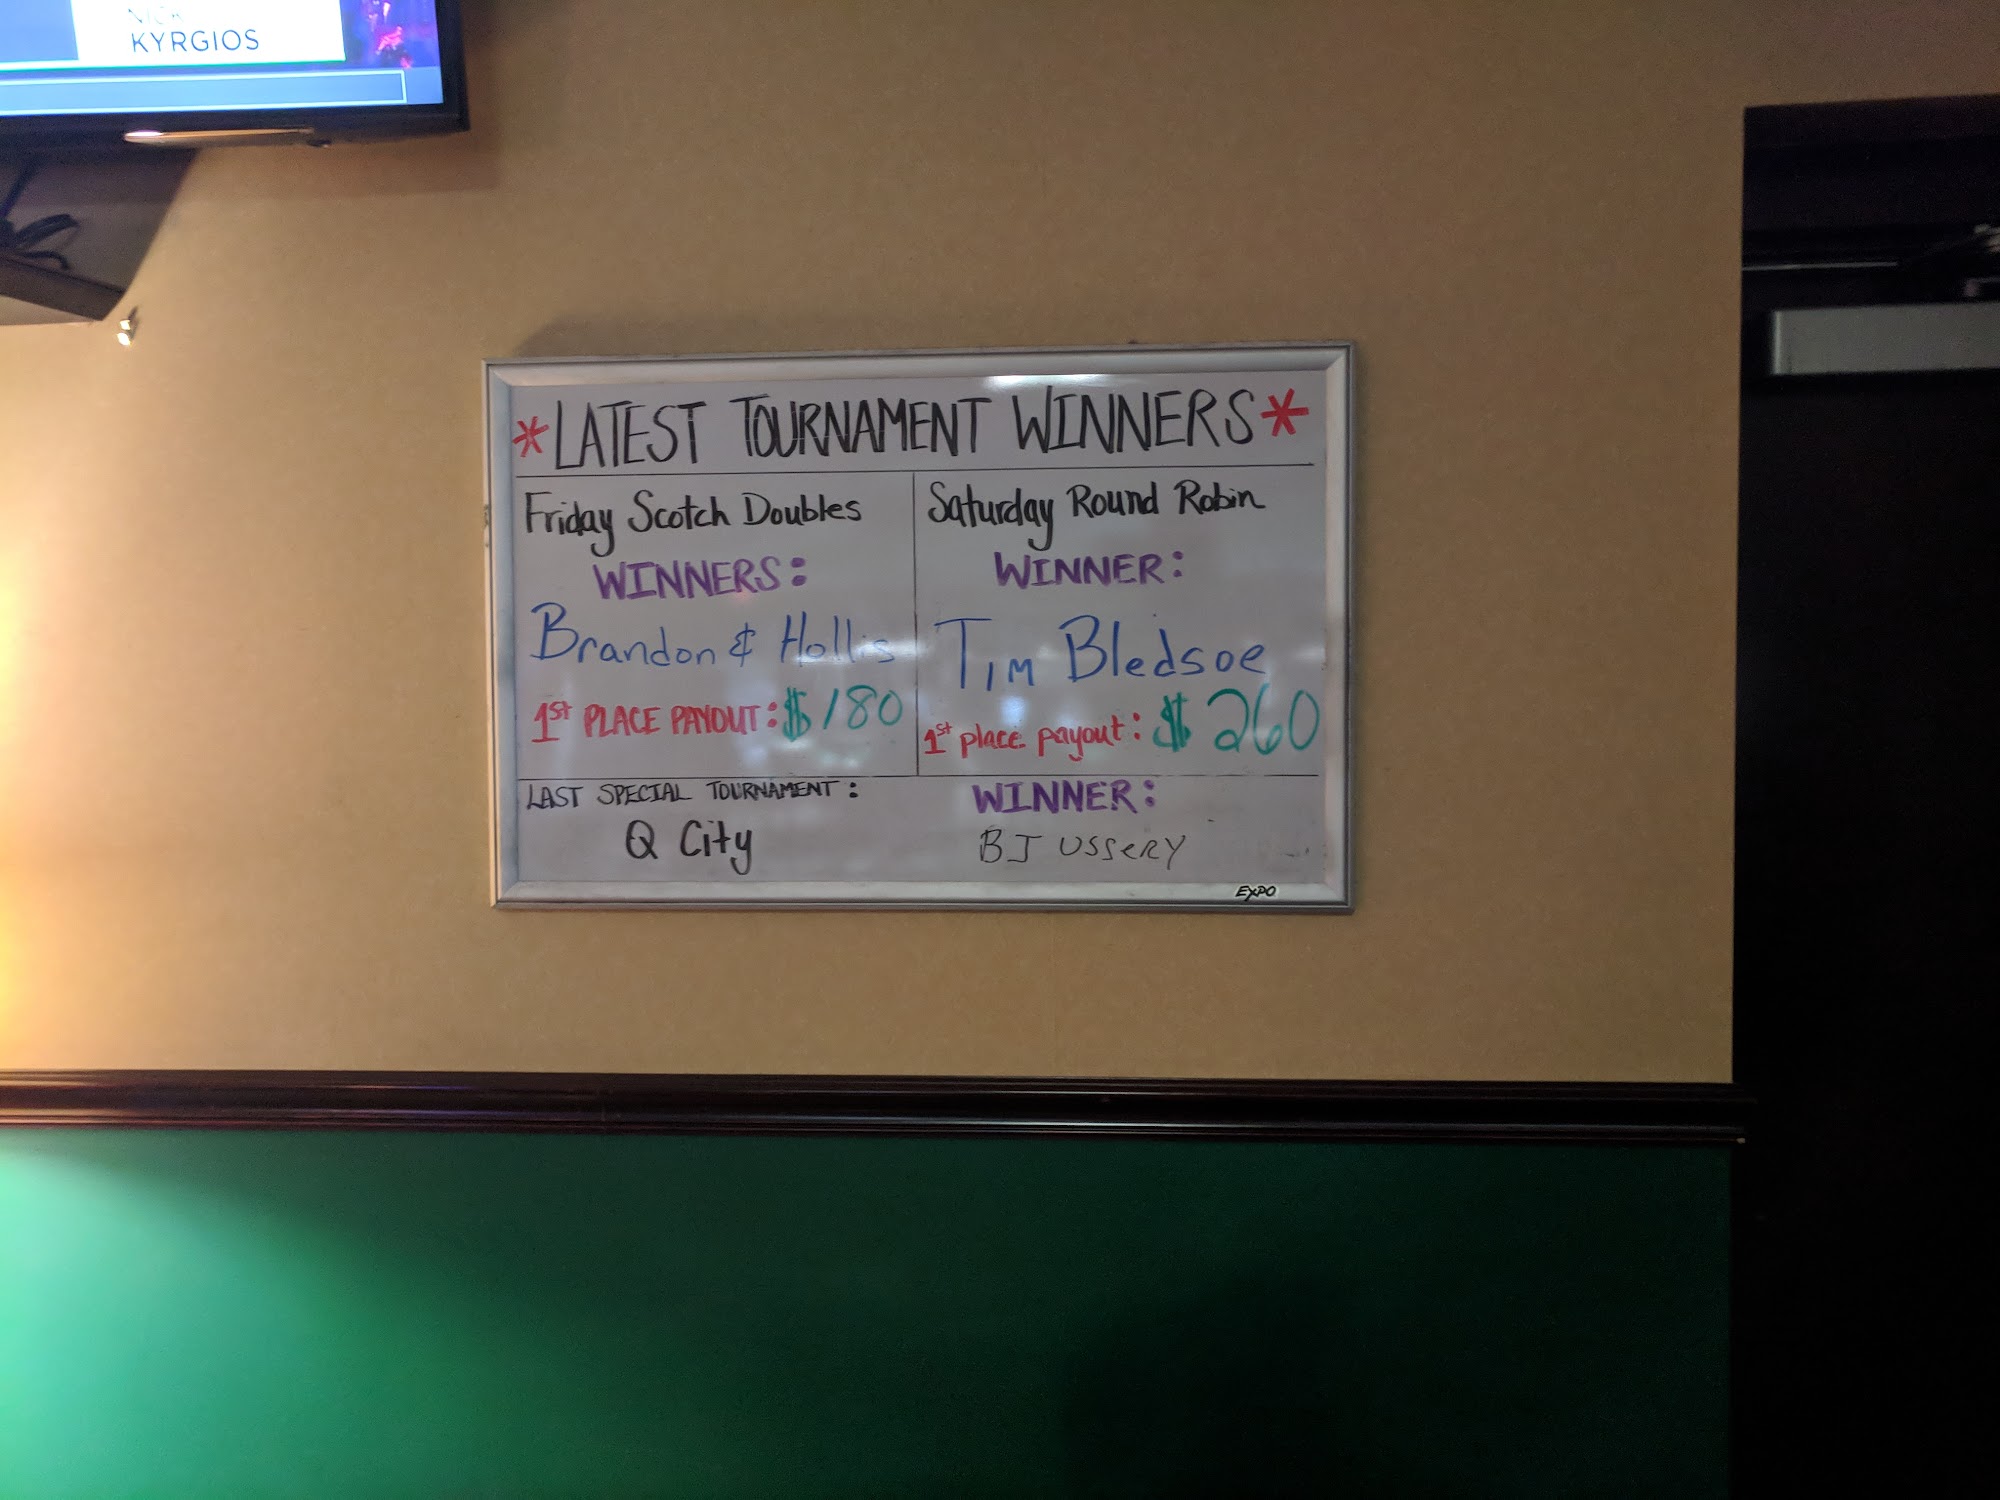 NICK
KYRGIOS
*LATEST TOURNAMENT WINNERS*
Friday Scotch Doubles
WINNERS:
Brandon & Hollis
1st PLACE PAYOUT: $180
Saturday Round Robin
WINNER:
Tim Bledsoe
1st place payout: $260
LAST SPECIAL TOURNAMENT:
Q City
WINNER:
BJ USSERY
EXPO